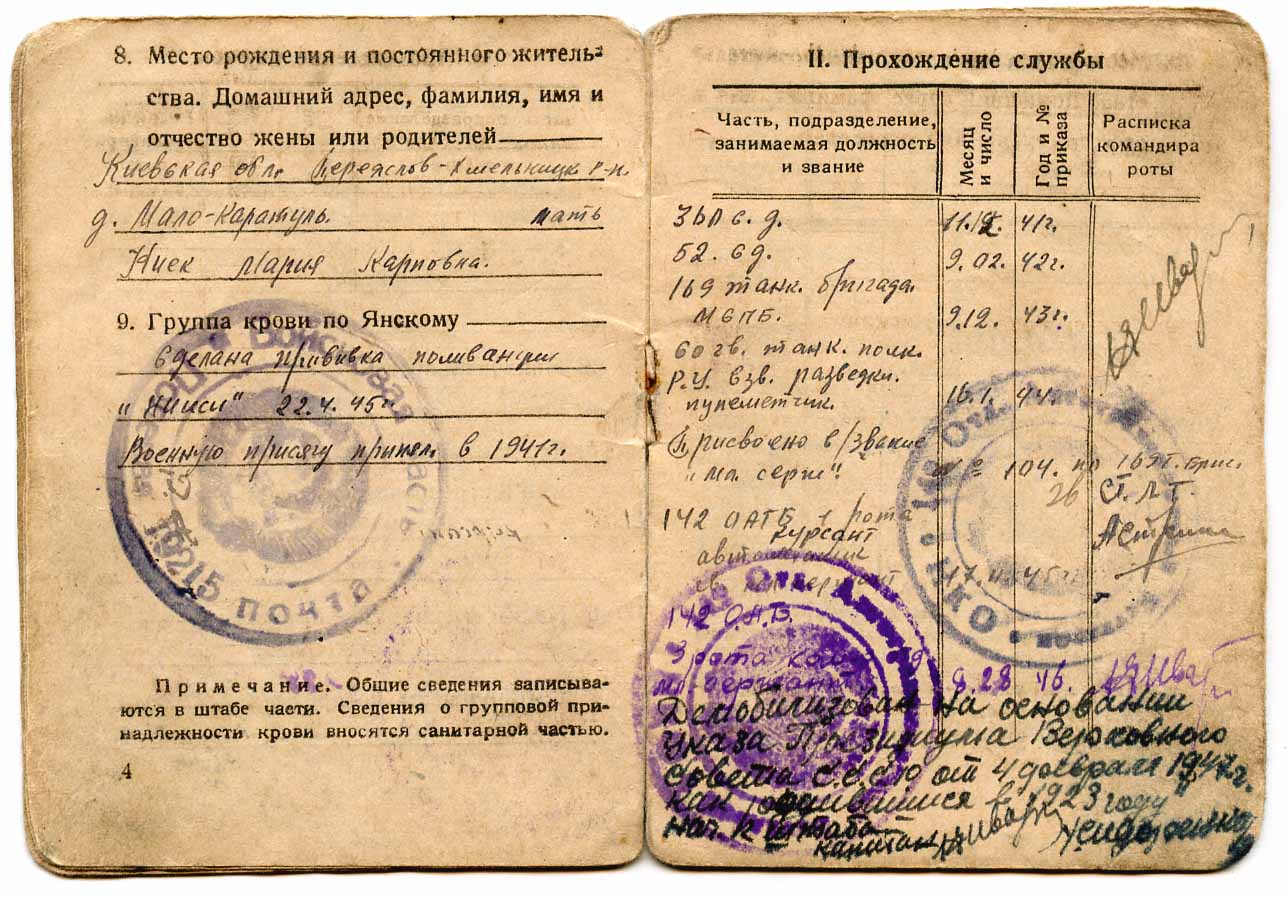 8. Место рождения и постоянного житель-
ства. Домашний адрес, фамилия, имя и
отчество жены или родителей
Киевская обл. Переяслов-Хмельницк р-н.
д. Мало-Каратуль. мать
Мария Карповна.
9. Группа крови по Янскому
Сделана прививка поливакцин
22.4.45г
Военную присягу принял в 1941г.
Войсковая часть
19215 почта
Примечание. Общие сведения записыва-
ются в штабе части. Сведения о групповой при-
надлежности крови вносятся санитарной частью.
4
II. Прохождение службы
Часть, подразделение, занимаемая должность и звание
Месяц и число
Год и № приказа
Расписка командира роты
с.д. 41г.
52. сд. 9.02. 42г.
169 танк. бригада.
МСПБ. 9.12. 43г.
60 гв. танк. полк.
Р.У. взв. разведки.
пулеметчик. 16.1. 44.
Присвоено в/звание
"мл. серж". № 104. по 169т. бриг.
ст. л-т.
142 ОАТБ 1 рота
курсант
45г
142 О.А.Б.
3 рота
мл. сержант 8.28 46.
Демобилизован на основании
указа Президиума Верховного
Совета С.С.С.Р от 4 февраля 1947г.
как родившийся в 1923 году
нач. штаба
капитан